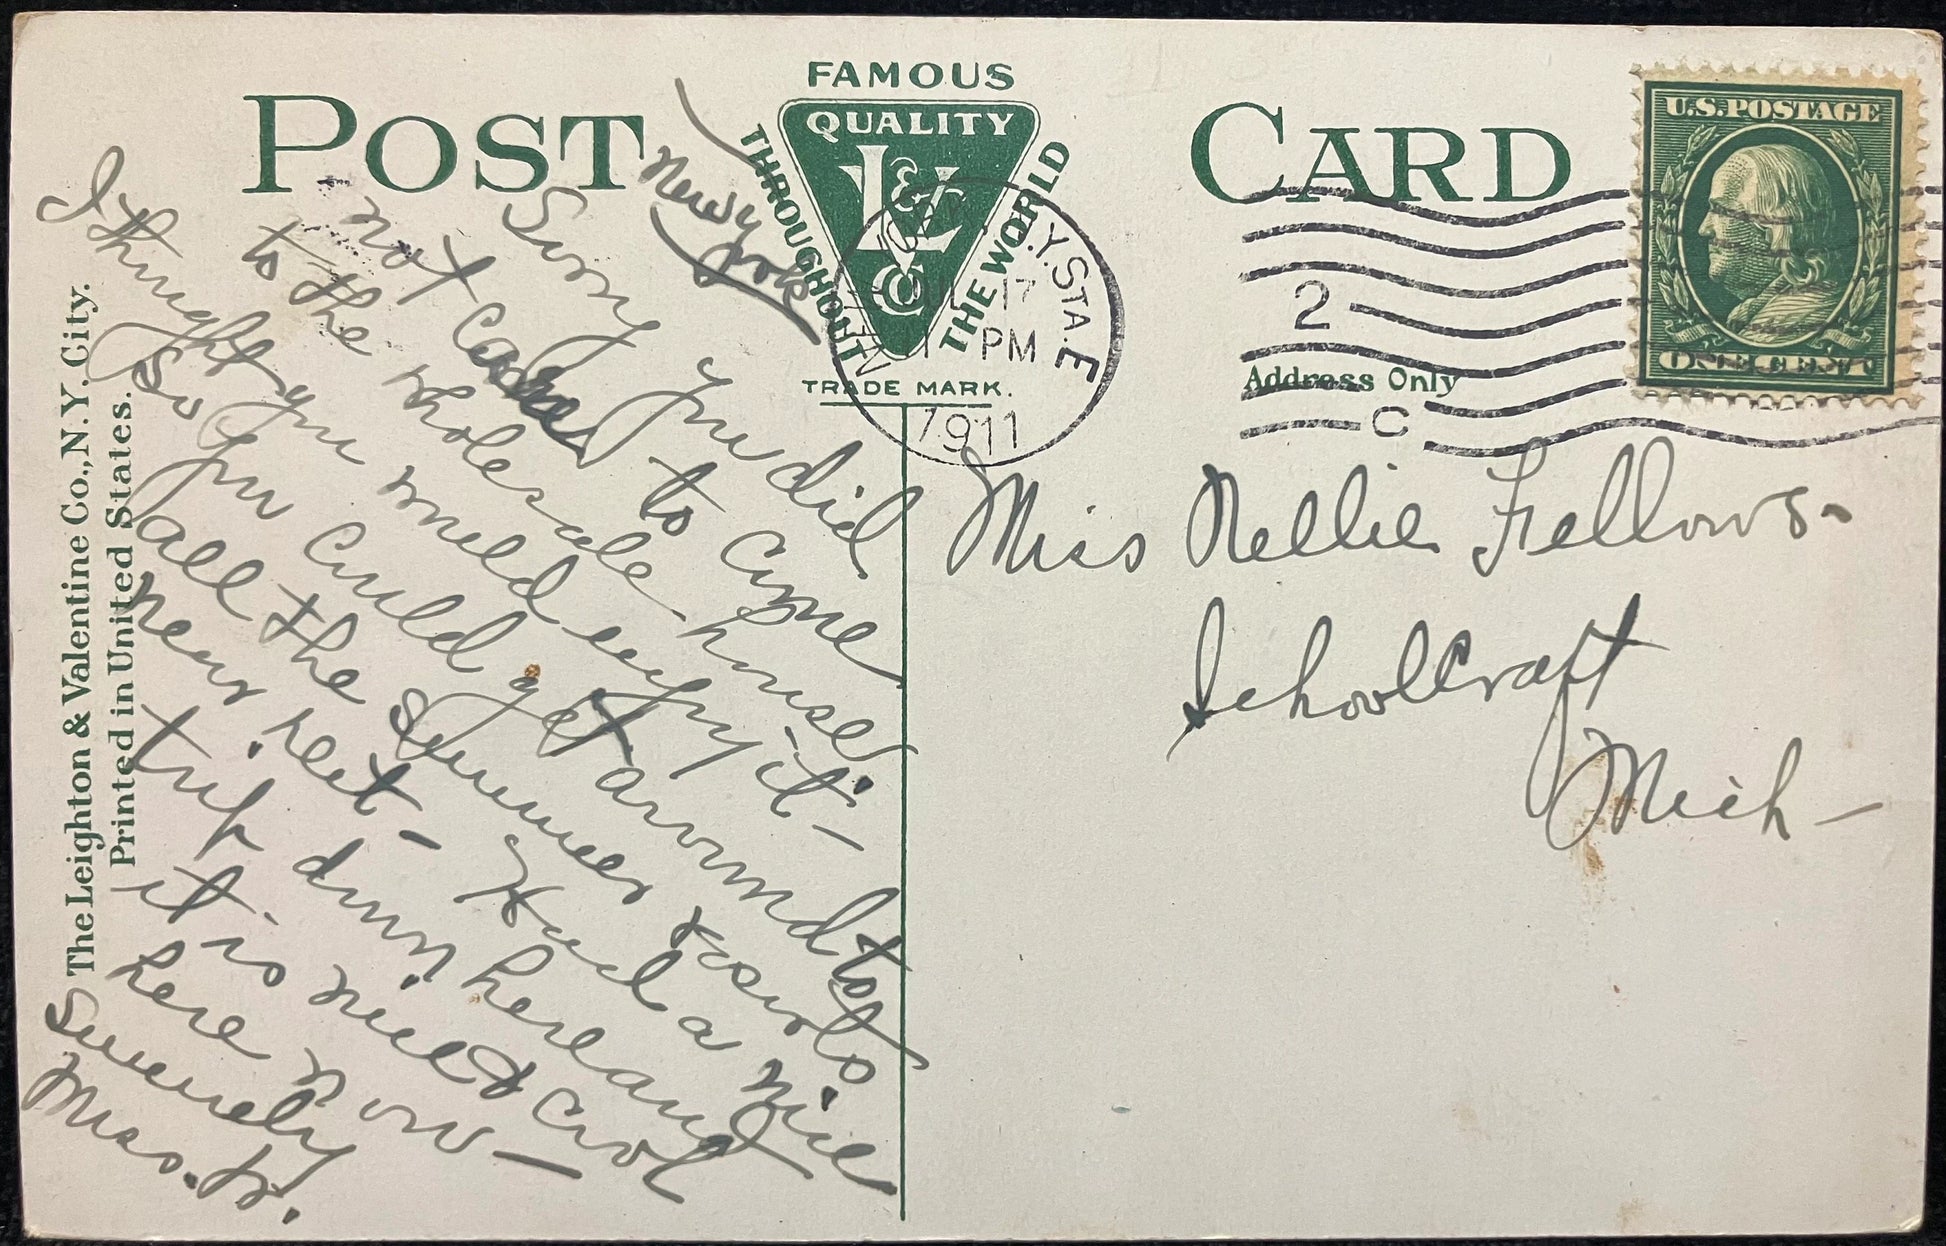 POST CARD
FAMOUS
QUALITY
L&V
Co
THROUGHOUT
THE WORLD
TRADE MARK.
U.S. POSTAGE
ONE CENT
NEW YORK, N.Y. STA. E
JUL 17
PM
1911
2
C
Address Only
The Leighton & Valentine Co., N.Y. City.
Printed in United States.
New York
Sorry you did
not care to come
to the wholesale house
I thought you would enjoy it -
So you could get around to
all the summer resorts
near next - Had a nice
trip down here and
it is nice & cool
here now -
Sincerely
Miss Nellie Fellows.
Schoolcraft
Mich -